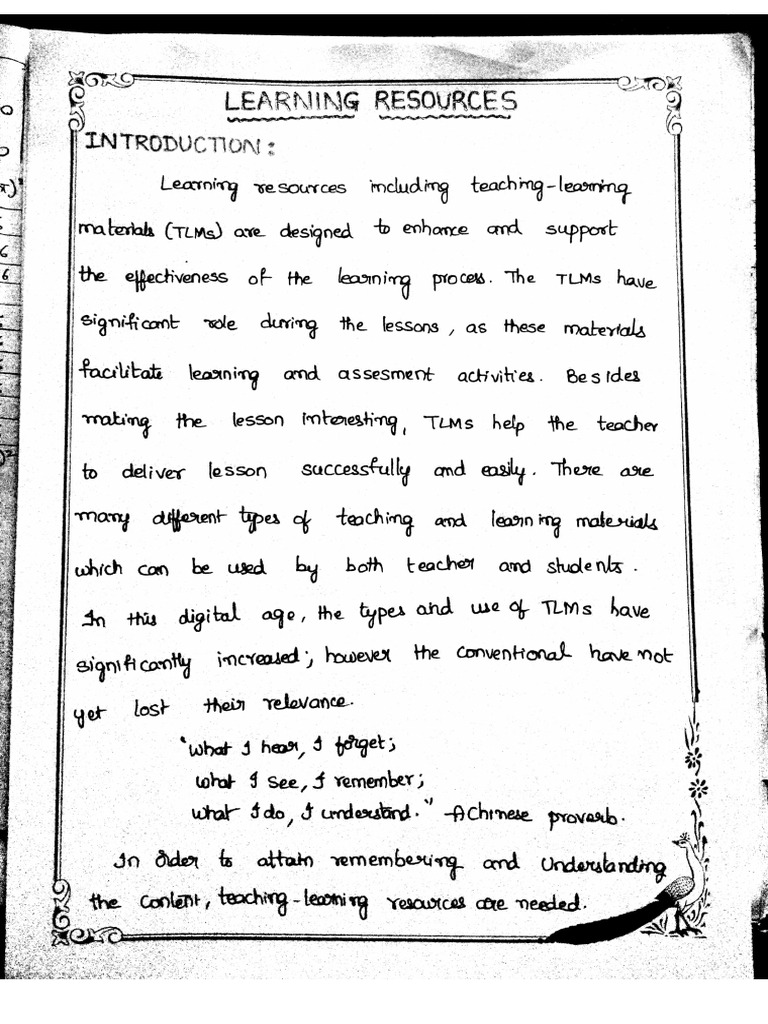 LEARNING RESOURCES
INTRODUCTION:
Learning resources including teaching-learning
materials (TLMs) are designed to enhance and support
the effectiveness of the learning process. The TLMs have
significant role during the lessons, as these materials
facilitate learning and assesment activities. Besides
making the lesson interesting, TLMs help the teacher
to deliver lesson successfully and easily. There are
many different types of teaching and learning materials
which can be used by both teacher and students.
In this digital age, the types and use of TLMs have
significantly increased; however the conventional have not
yet lost their relevance.
"What I hear, I forget;
what I see, I remember;
what I do, I understand." -A Chinese proverb.
In order to attain remembering and understanding
the content, teaching-learning resources are needed.